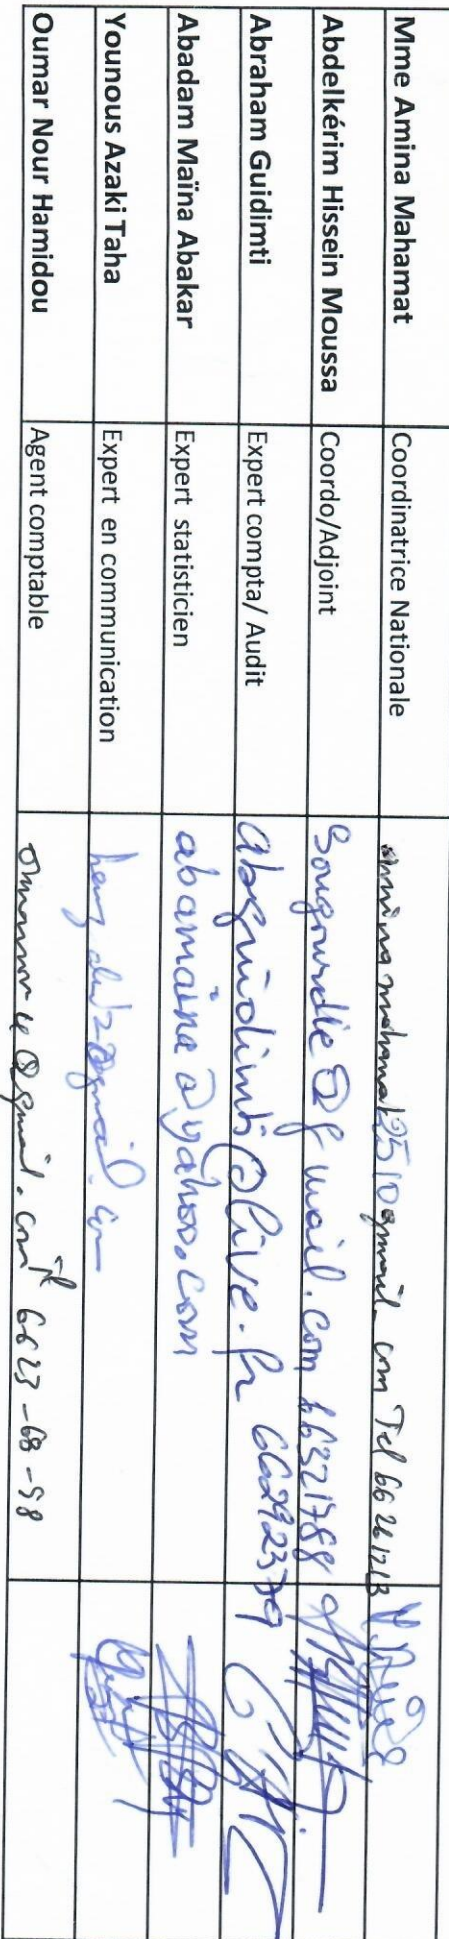 Mme Amina Mahamat Coordinatrice Nationale gmail.com Tel
Abdelkérim Hissein Moussa Coordo/Adjoint @gmail.com 66321788
Abraham Guidimti Expert compta/ Audit abguidimti@live.fr 66292379
Abadam Maïna Abakar Expert statisticien abamaina@yahoo.com
Younous Azaki Taha Expert en communication
Oumar Nour Hamidou Agent comptable @gmail.com 6623-68-98